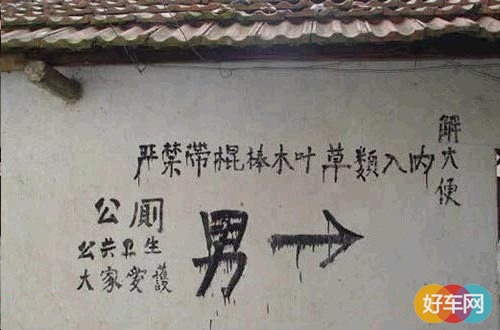 严禁带棍棒木叶草類入内
解大便
公厕
公共卫生
大家爱護
男
好车网